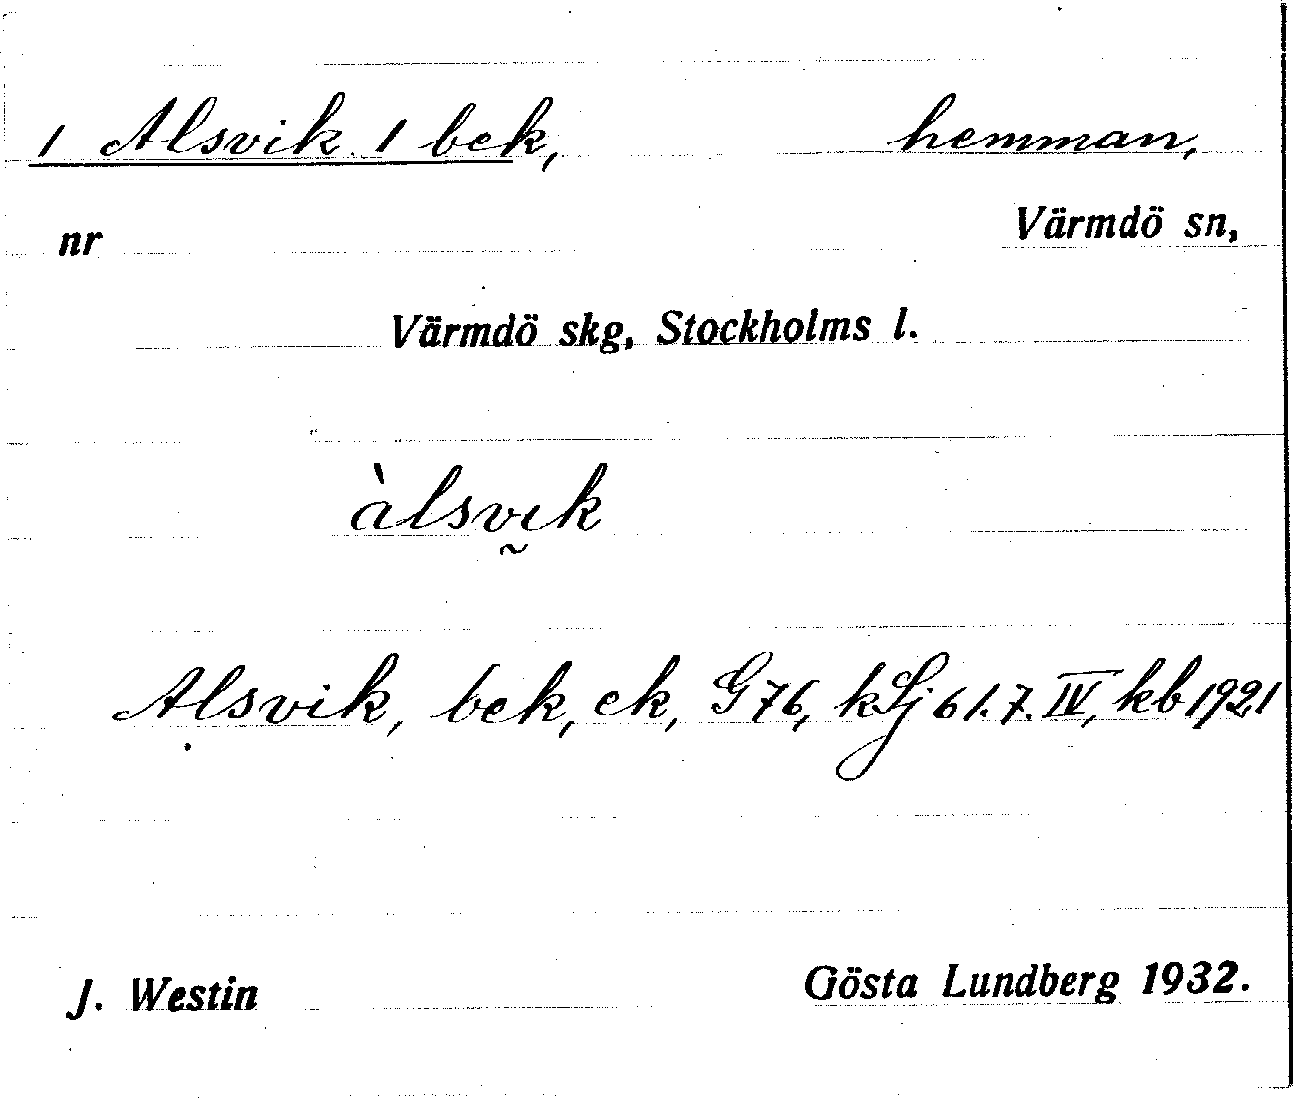 1 Alsvik 1 bek, hemman,
nr Värmdö sn,
Värmdö skg, Stockholms l.
àlsvik
Alsvik, bek, ek, G 76, kLj 61.7.IV, kb 1921
J. Westin Gösta Lundberg 1932.